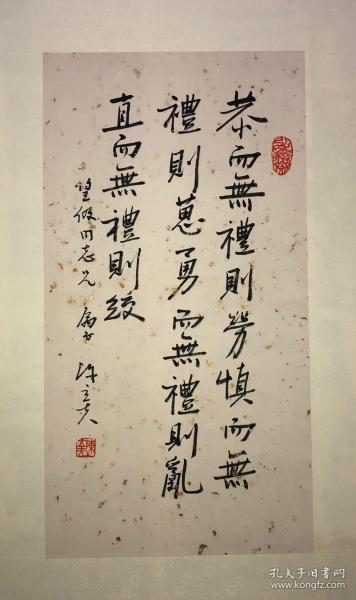 恭而無禮則勞慎而無
禮則葸勇而無禮則亂
直而無禮則絞
同志兄屬
孔夫子旧书网
www.kongfz.com